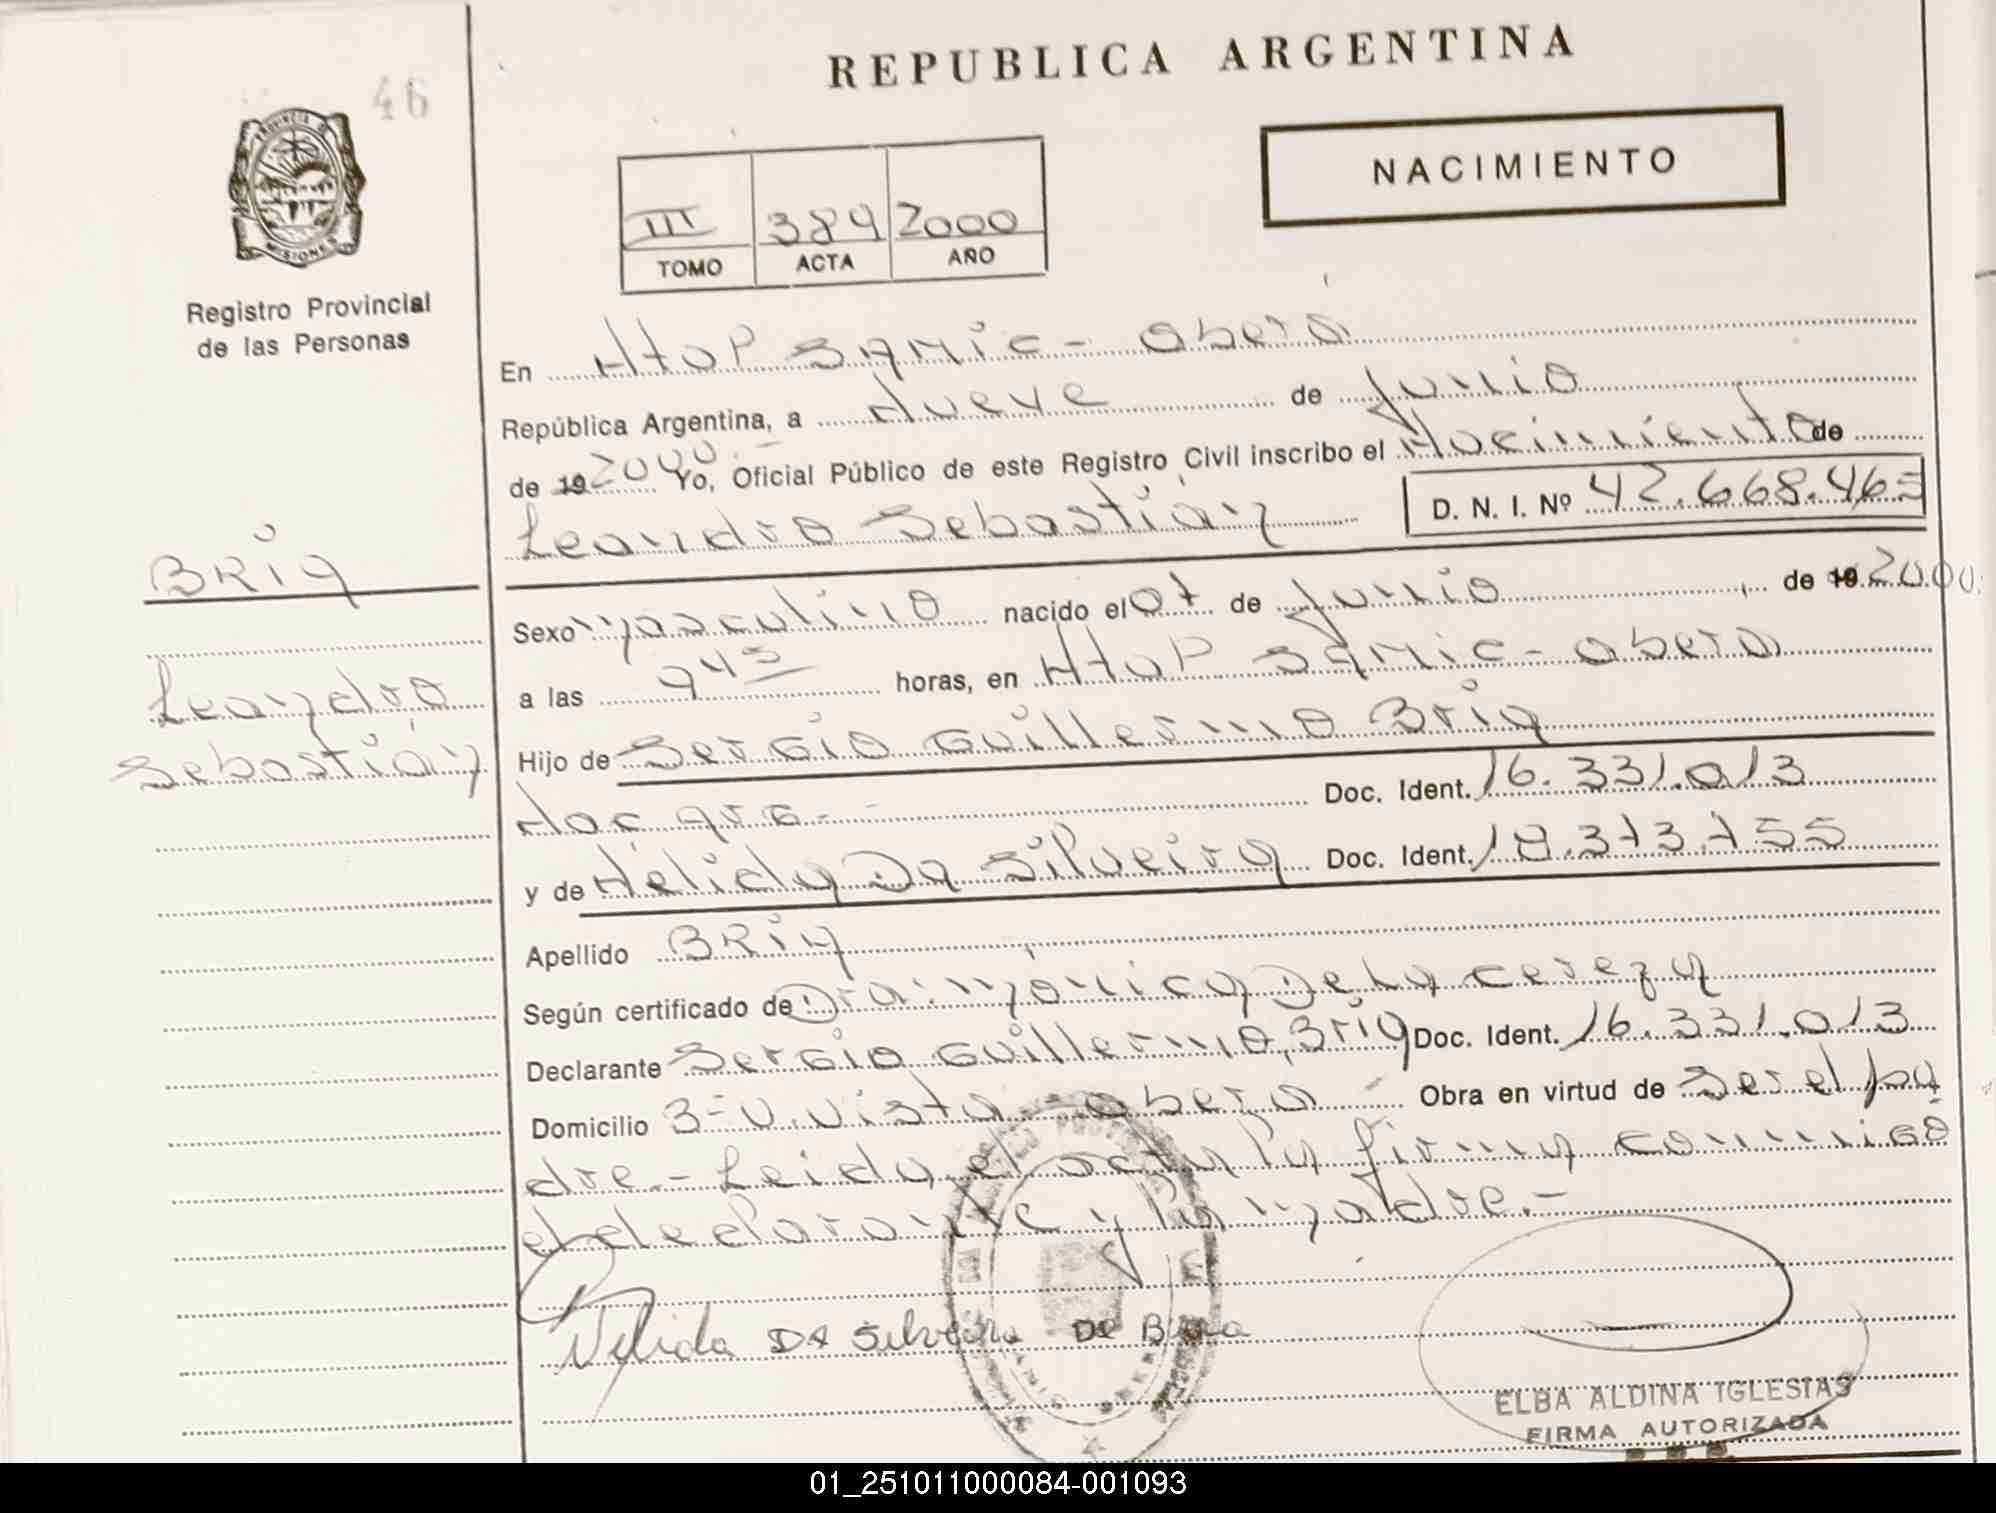 46
REPUBLICA ARGENTINA
PROVINCIA DE
MISIONES
NACIMIENTO
III 384 2000
TOMO ACTA AÑO
Registro Provincial
de las Personas
En Htop SAMiC - Oberá
República Argentina, a Nueve de Junio
de 19 2000.- Yo, Oficial Público de este Registro Civil inscribo el Nacimiento de
Leandro Sebastián D. N. I. Nº 42.668.465
BRiA
Sexo masculino nacido el 07 de Junio de 19 2000.
Leandro
a las 9 45 horas, en Htop SAMiC - Oberá
Sebastián
Hijo de Sergio Guillermo Bria
Nac. Arg.- Doc. Ident. 16.331.013
y de Nélida Da Silveira Doc. Ident. 18.373.755
Apellido BRiA
Según certificado de Dra. Mónica De La Cereza
Declarante Sergio Guillermo Bria Doc. Ident. 16.331.013
Domicilio B= V. Vista - Oberá Obra en virtud de Ser el pa
dre.- Leida el acta la firma conmigo
el declarante y la madre.-
Nelida DA Silveira DE Bria
ELBA ALDINA IGLESIAS
FIRMA AUTORIZADA
01_251011000084-001093